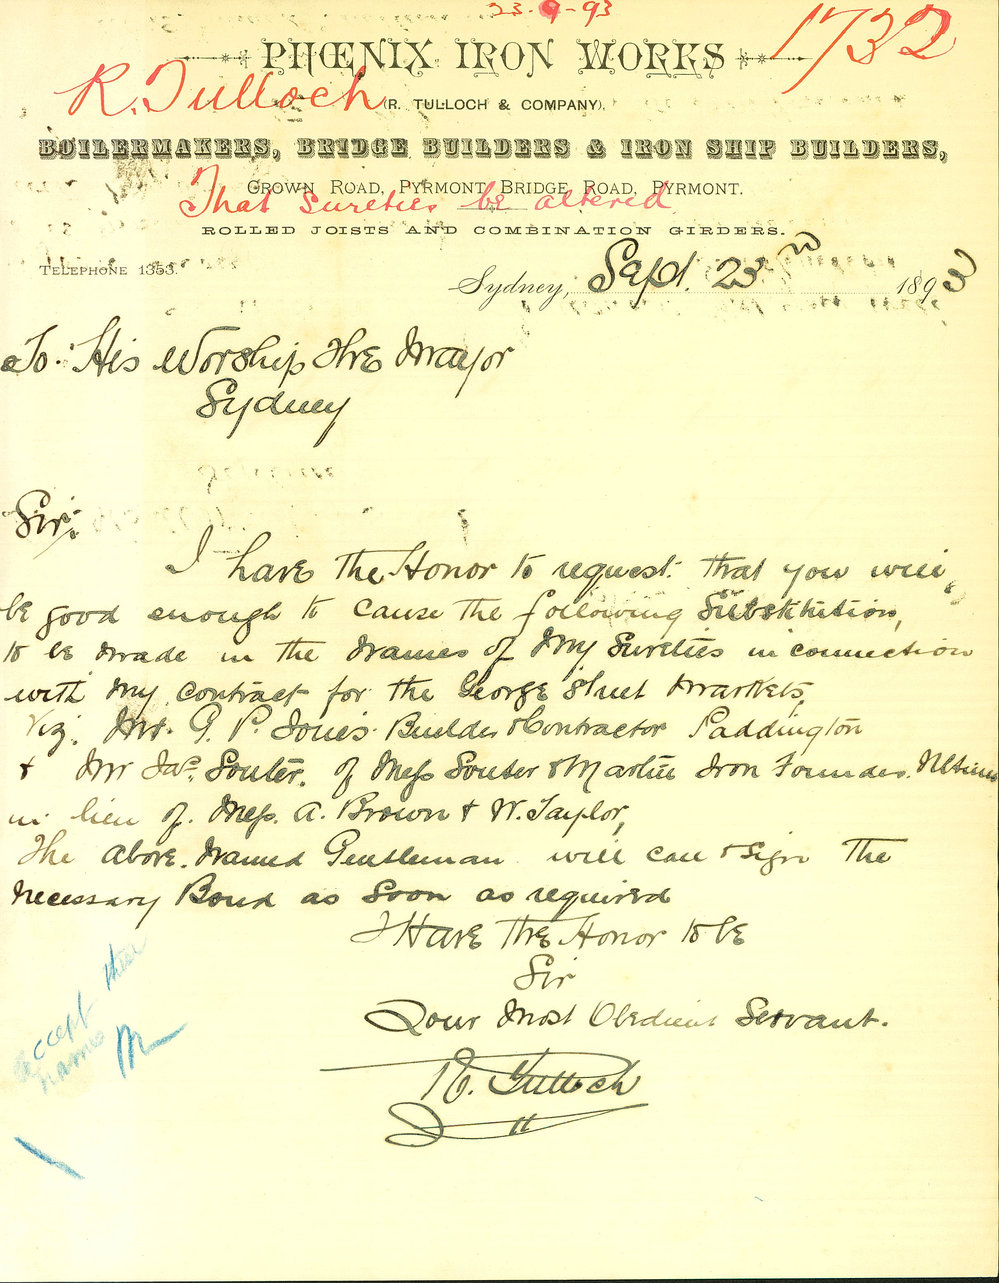 23-9-93
1732
PHŒNIX IRON WORKS
R. Tulloch
(R. TULLOCH & COMPANY),
BOILERMAKERS, BRIDGE BUILDERS & IRON SHIP BUILDERS,
CROWN ROAD, PYRMONT BRIDGE ROAD, PYRMONT.
That sureties be altered
ROLLED JOISTS AND COMBINATION GIRDERS.
TELEPHONE 1353.
Sydney, Sept. 23rd 1893
To. His Worship The Mayor
Sydney
Sir,
I have the Honor to request that you will
be good enough to cause the following Substitution,
to be made in the Names of My Sureties in connection
with My Contract for the George Street Markets,
Viz. Mr. G. P. Jones Builder & Contractor Paddington
& Mr Jas. Souter. of Mess Souter & Martin Iron Founders. Ultimo
in lieu of. Mess. A. Brown & W. Taylor,
The above. Named Gentleman will call & sign the
Necessary Bond as Soon as required
I Have the Honor to be
Sir
Your Most Obedient Servant.
R. Tulloch
accept these
names
M